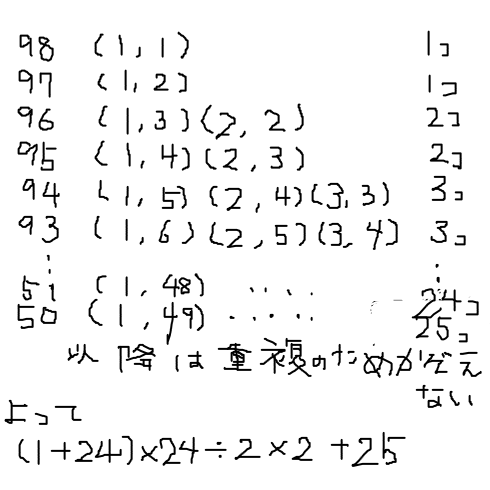 98 (1,1) 1コ
97 (1,2) 1コ
96 (1,3)(2,2) 2コ
95 (1,4)(2,3) 2コ
94 (1,5)(2,4)(3,3) 3コ
93 (1,6)(2,5)(3,4) 3コ
⋮ ⋮
51 (1,48) ‥‥ 24コ
50 (1,49) ‥‥‥ 25コ
以降は重複のためかぞえ
ない
よって
(1+24)×24÷2×2+25